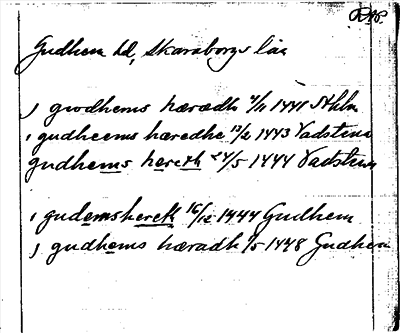 RAP.
Gudhem hd, Skaraborgs län
j gwdhems hæradh 4/11 1441 Sthlm
i gudheems hæredhe 13/2 1443 Vadstena
gudhems hereth 24/5 1444 Vadstena
i gudemsherett 16/12 1444 Gudhem
j gudhems hæradh 1/5 1448 Gudhem